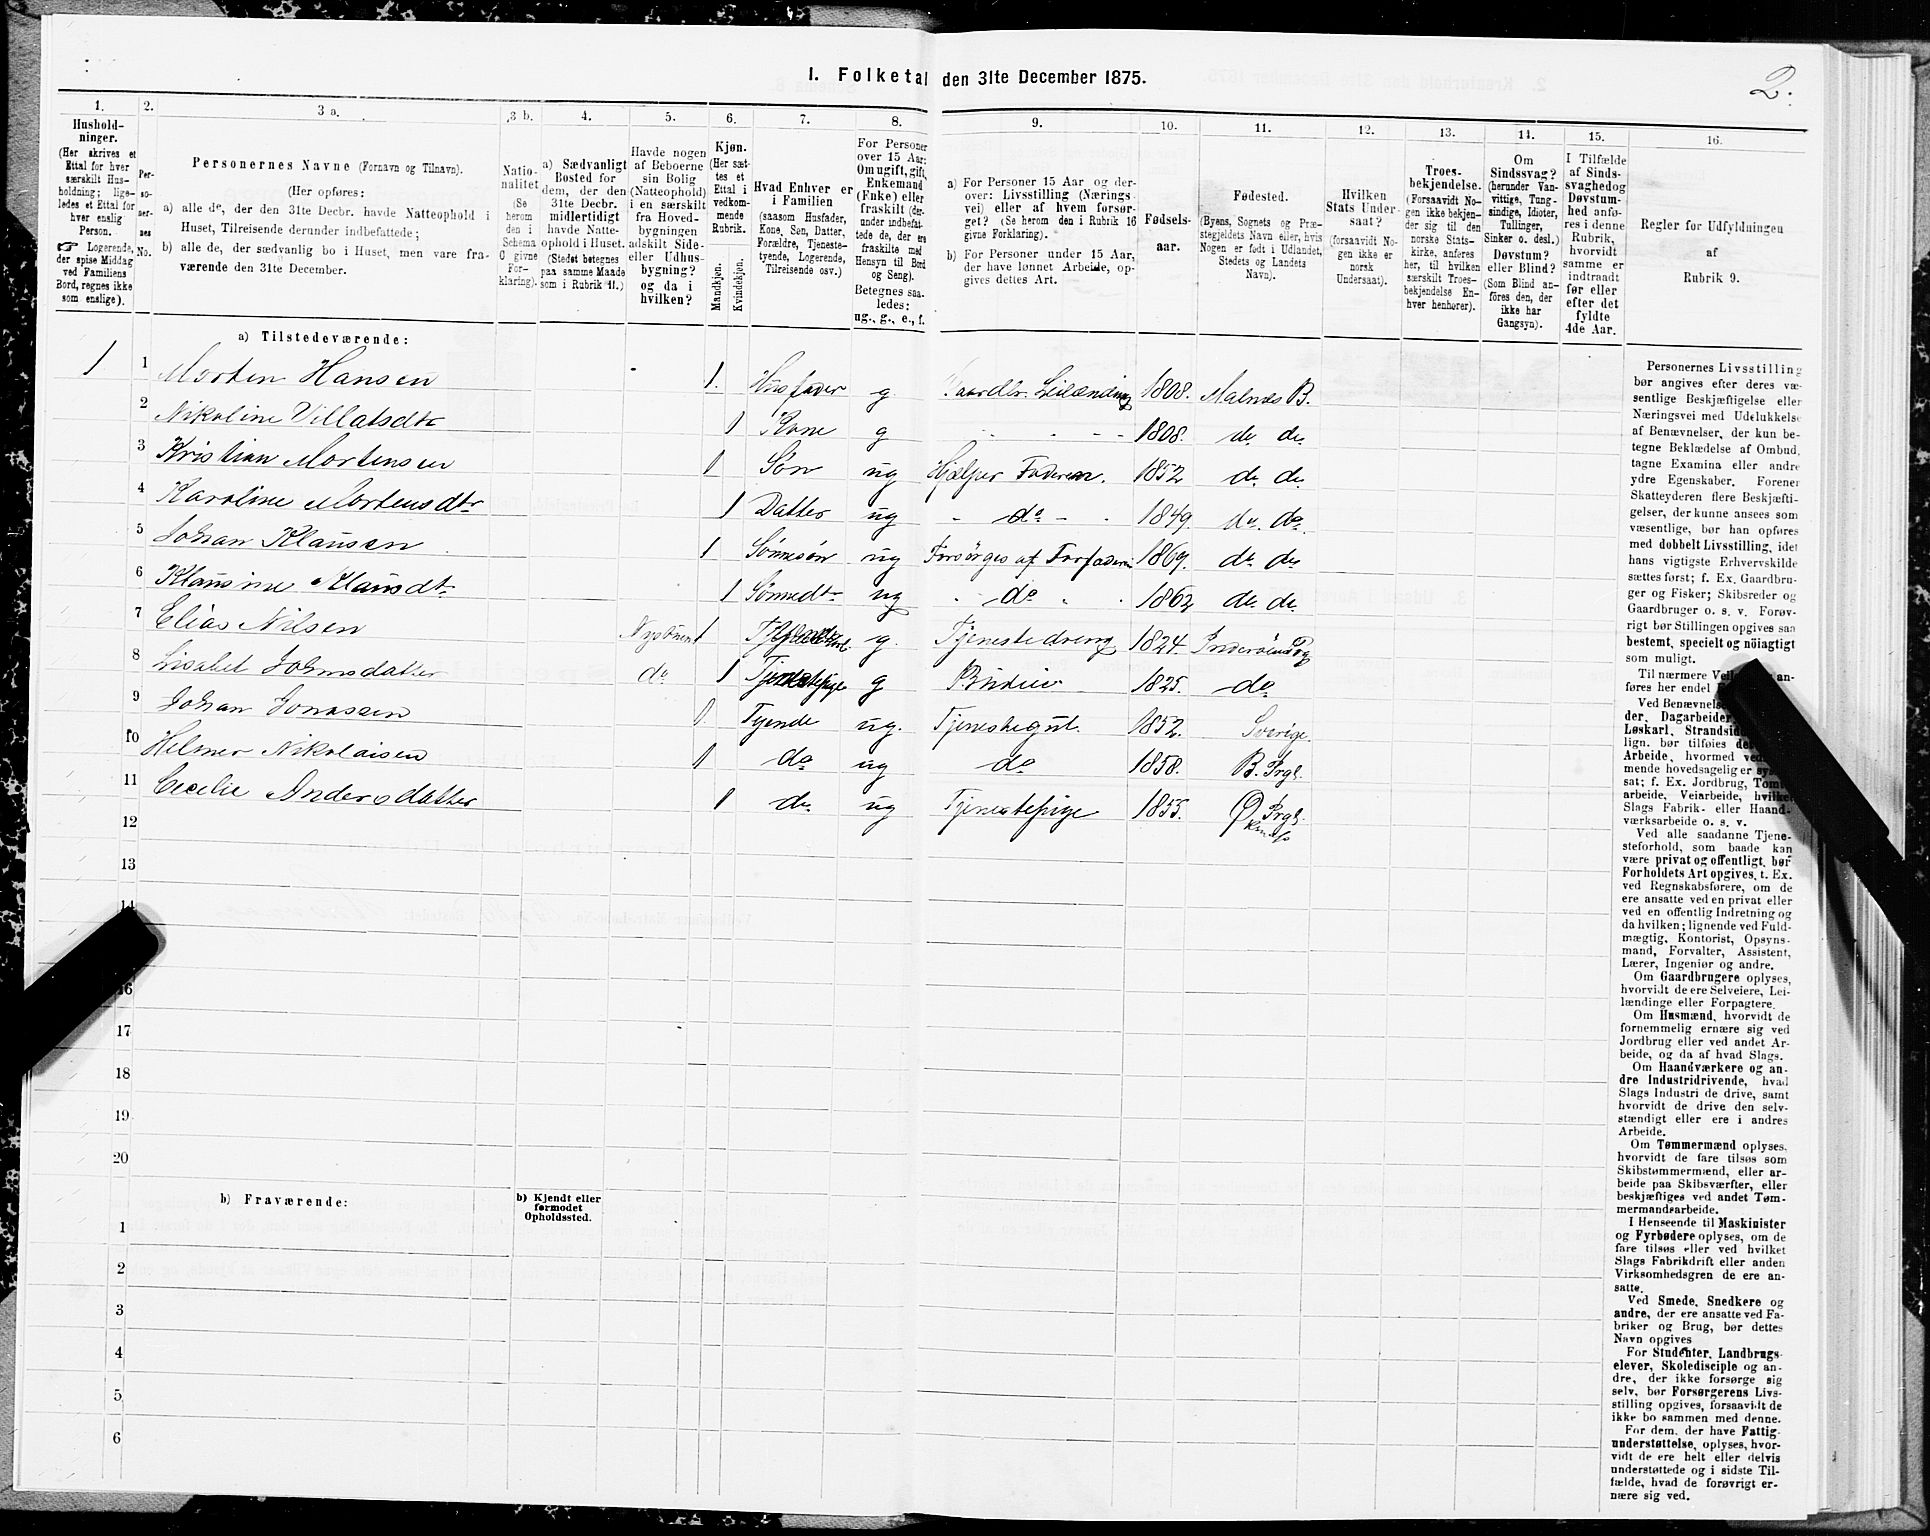 I. Folketal den 31te December 1875.
2.
1.
Hushold-
ninger.
(Her skrives et
Ettal for hver
særskilt Hus-
holdning; lige-
ledes et Ettal for
hver enslig
Person.
Logerende,
der spise Middag
ved Familiens
Bord, regnes ikke
som enslige).
2.
Per-
so-
ner-
nes
No.
3 a.
Personernes Navne (Fornavn og Tilnavn).
(Her opføres:
a) alle de, der den 31te Decbr. havde Natteophold i
Huset, Tilreisende derunder indbefattede;
b) alle de, der sædvanlig bo i Huset, men vare fra-
værende den 31te December.
3 b.
Natio-
nalitet
(Se
herom
den i
Schema
C givne
For-
klaring).
4.
a) Sædvanligt
Bosted for
dem, der den
31te Decbr.
midlertidigt
havde Natte-
ophold i Huset.
(Stedet betegnes
paa samme Maade
som i Rubrik 11.)
5.
Havde nogen
af Beboerne
sin Bolig
(Natteophold)
i en særskilt
fra Hoved-
bygningen
adskilt Side-
eller Udhus-
bygning?
og da i
hvilken?
6.
Kjøn.
(Her sæt-
tes et
Ettal i
vedkom-
mende
Rubrik.
Mandkjøn.
Kvindekjøn.
7.
Hvad Enhver er
i Familien
(saasom Husfader,
Kone, Søn, Datter,
Forældre, Tjeneste-
tyende, Logerende,
Tilreisende osv.)
8.
For Personer
over 15 Aar:
Om ugift, gift,
Enkemand
(Enke) eller
fraskilt (der-
under indbefat-
tede de, der ere
fraskilte med
Hensyn til Bord
og Seng).
Betegnes saa-
ledes:
ug., g., e., f.
9.
a) For Personer 15 Aar og der-
over: Livsstilling (Nærings-
vei) eller af hvem forsør-
get? (Se herom den i Rubrik 16
givne Forklaring).
b) For Personer under 15 Aar,
der have lønnet Arbeide, op-
gives dettes Art.
10.
Fødsels-
aar.
11.
Fødested.
(Byens, Sognets og Præ-
stegjeldets Navn eller, hvis
Nogen er født i Udlandet,
Stedets og Landets
Navn).
12.
Hvilken
Stats Under-
saat?
(forsaavidt No-
gen ikke er
norsk
Undersaat).
13.
Troes-
bekjendelse.
(Forsaavidt No-
gen ikke bekjen-
der sig til den
norske Stats-
kirke, anføres
her, til hvilken
særskilt Troes-
bekjendelse En-
hver henhører).
14.
Om
Sindssvag?
(herunder Van-
vittige, Tung-
sindige, Idioter,
Tullinger,
Sinker o. desl.)
Døvstum?
eller Blind?
(Som Blind an-
føres den, der
ikke har
Gangsyn).
15.
I Tilfælde
af Sinds-
svaghed og
Døvstum-
hed anfø-
res i denne
Rubrik,
hvorvidt
samme er
indtraadt
før eller
efter det
fyldte
4de Aar.
16.
Regler for Udfyldningen
af
Rubrik 9.
a) Tilstedeværende:
1 1 Morten Hansen 1. Husfader g Gaardbr. Leilænding 1808. Malnes B.
2 Nikoline Villatsdtr 1 Kone g 1808. do do
3 Kristian Mortensen 1 Søn ug Hjælper Faderen. 1852 do do
4 Karoline Mortensdtr 1 Datter ug do 1849. do. do.
5 Johan Klausen 1 Sønnesøn ug Forsørges af Forfadern 1869. do do
6 Klausine Klausdtr 1 Sønnedtr ug do 1862 do do
7 Elias Nilsen 1 g. Tjenestedreng 1824.
8 Lisabet Johnsdatter do 1 Tjenestepige g 1825. do
9 Johan Jonassen 1 Tyende ug. Tjenestegut. 1852. Sverige.
10 Helmer Nikolaisen 1 do ug do 1858. B. Prgl.
11 Cecelie Andersdatter 1 do. ug Tjenestepige 1855. Prgl.
12
13
14
16
17
18
19
20
b) Fraværende:
b) Kjendt eller
formodet
Opholdssted.
1
2
3
4
5
6
Personernes Livsstilling
bør angives efter deres væ-
sentlige Beskjæftigelse eller
Næringsvei med Udelukkelse
af Benævnelser, der kun be-
tegne Beklædelse af Ombud,
tagne Examina eller andre
ydre Egenskaber. Forener
Skatteyderen flere Beskjæfti-
gelser, der kunne ansees som
væsentlige, bør han opføres
med dobbelt Livsstilling, idet
hans vigtigste Erhvervskilde
sættes først; f. Ex. Gaardbru-
ger og Fisker; Skibsreder og
Gaardbruger o. s. v. Forøv-
rigt bør Stillingen opgives saa
bestemt, specielt og nøiagtigt
som muligt.
Til nærmere Veile an-
føres her endel
Ved Benævnels
der, Dagarbeider,
Løskarl, Strandsid
lign. bør tilføies de
Arbeide, hvormed ved
mende hovedsagelig er sys
sat; f. Ex. Jordbrug, Tom
arbeide, Veiarbeide, hvilke
Slags Fabrik- eller Haand-
værksarbeide o. s. v.
Ved alle saadanne Tjene-
steforhold, som baade kan
være privat og offentligt, bør
Forholdets Art opgives, t. Ex.
ved Regnskabsførere, om de
ere ansatte ved en privat eller
ved en offentlig Indretning og
da hvilken; lignende ved Fuld-
mægtig, Kontorist, Opsyns-
mand, Forvalter, Assistent,
Lærer, Ingeniør og andre.
Om Gaardbrugere oplyses,
hvorvidt de ere Selveiere, Lei-
lændinge eller Forpagtere.
Om Husmænd, hvorvidt de
fornemmelig ernære sig ved
Jordbrug eller ved andet Ar-
beide, og da af hvad Slags.
Om Haandværkere og an-
dre Industridrivende, hvad
Slags Industri de drive, samt
hvorvidt de drive den selv-
stændigt eller ere i andres
Arbeide.
Om Tømmermænd oplyses,
hvorvidt de fare tilsøs som
Skibstømmermænd, eller ar-
beide paa Skibsværfter, eller
beskjæftiges ved andet Tøm-
mermandsarbeide.
I Henseende til Maskinister
og Fyrbødere oplyses, om de
fare tilsøs eller ved hvilket
Slags Fabrikdrift eller anden
Virksomhedsgren de ere an-
satte.
Ved Smede, Snedkere og
andre, der ere ansatte ved Fa-
briker og Brug, bør dettes
Navn opgives
For Studenter, Landbrugs-
elever, Skoledisciple og an-
dre, der ikke forsørge sig
selv, bør Forsørgerens Livs-
stilling opgives, forsaavidt de
ikke bo sammen med denne.
For dem, der have Fattig-
understøttelse, oplyses, hvor-
vidt de ere helt eller delvis
understøttede og i sidste Til-
fælde, hvad de forøvrigt er-
nære sig ved.